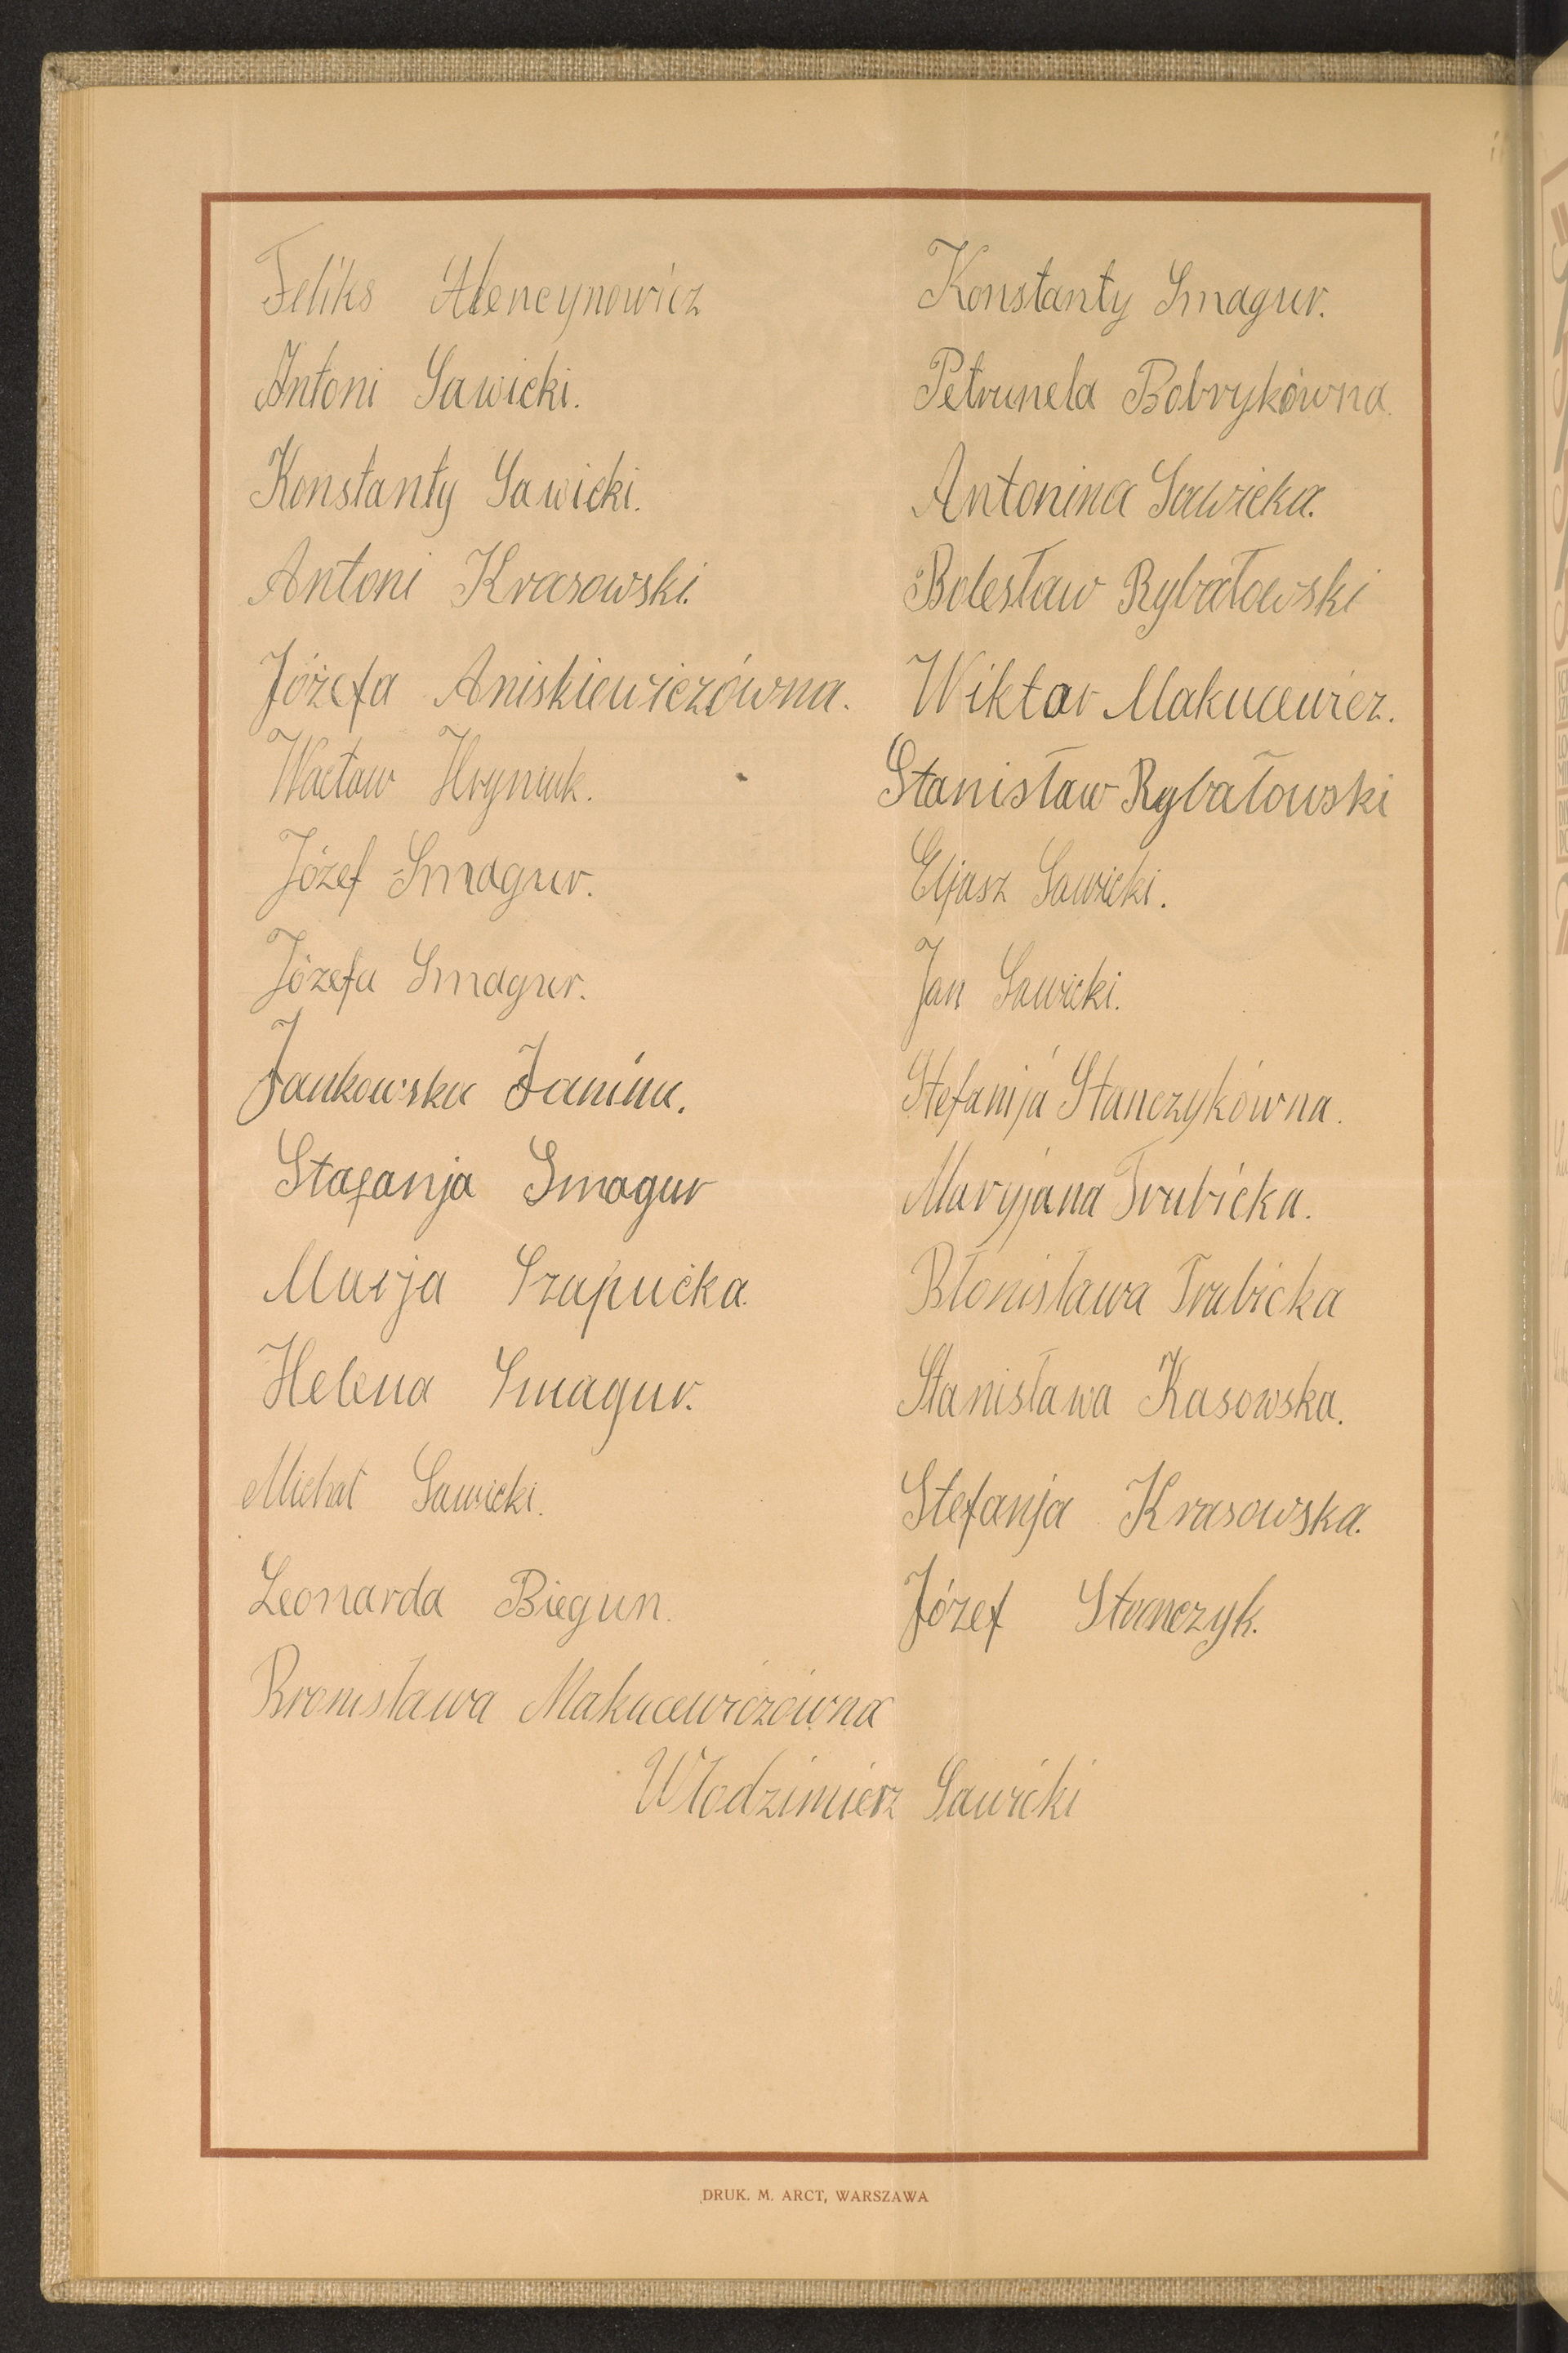 Feliks Alencynowicz
Antoni Sawicki.
Konstanty Sawicki.
Antoni Krasowski.
Józefa Aniskiewiczówna.
Wacław Hryniuk.
Józef Smagur.
Józefa Smagur.
Jankowska Janina.
Stafanja Smagur
Marja Szapućka.
Helena Smagur.
Michał Sawicki.
Leonarda Biegun.
Bronisława Makucewiczówna
Konstanty Smagur.
Petrunela Bobrykówna.
Antonina Sawicka.
Bolesław Rybałowski
Wiktor Makucewicz.
Stanisław Rybałowski
Eljasz Sawicki.
Jan Sawicki.
Stefanija Stanczykówna.
Maryjana Trubicka.
Błonisława Trubicka
Stanisława Kasowska.
Stefanja Krasowska.
Józef Stanczyk.
Włodzimierz Sawicki
DRUK. M. ARCT, WARSZAWA